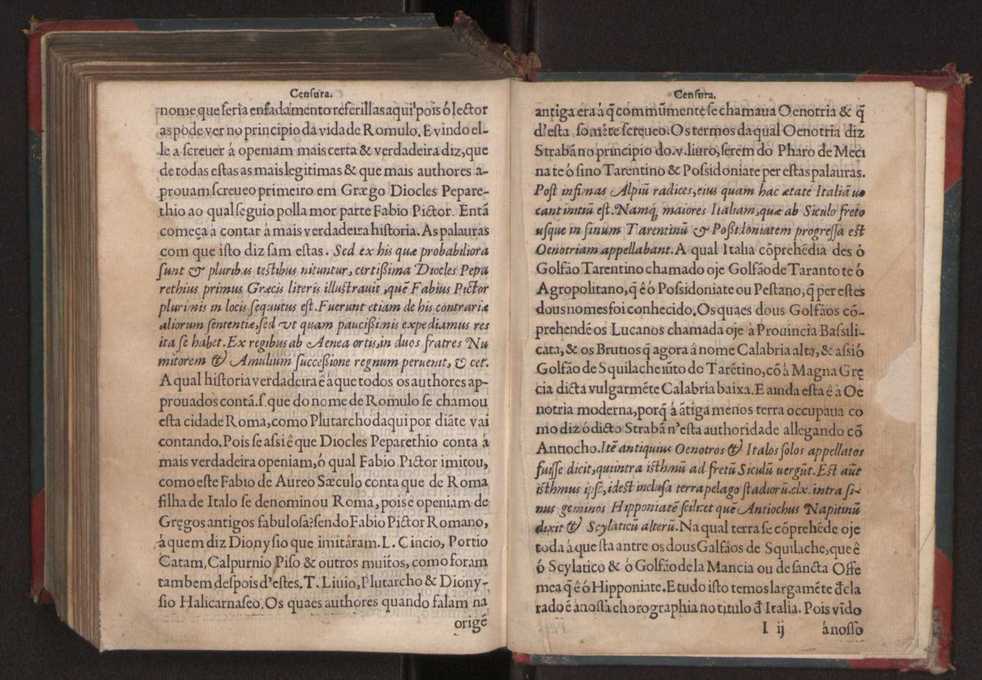 Censura.
nome que seria enfadamento referillas aqui pois ó lector
as póde ver no principio da vida de Romulo. E vindo el-
le a screuer á openiam mais certa & verdadeira diz, que
de todas estas as mais legitimas & que mais authores a-
prouam screueo primeiro em Grægo Diocles Pepare-
thio ao qual seguio polla mor parte Fabio Pictor. Entã
começa à contar à mais verdadeira historia. As palauras
com que isto diz sam estas. Sed ex his quæ probabiliora
sunt & pluribus testibus nituntur, certißima Diocles Pepa
rethius primus Græcis literis illustrauit, quẽ Fabius Pictor
plurimis in locis sequutus est. Fuerunt etiam de his contrariæ
aliorum sententiæ, sed vt quam paucißimis expediamus res
ita se habet. Ex regibus ab Aenea ortis, in duos fratres Nu
mitorem & Amulium succeßione regnum peruenit, & cet.
A qual historia verdadeira é à que todos os authores ap-
prouados contã. s. que do nome de Romulo se chamou
esta cidade Roma, como Plutarcho daqui por diãte vai
contando. Pois se assi ê que Diocles Peparethio conta á
mais verdadeira openiam, ó qual Fabio Pictor imitou,
como este Fabio de Aureo Sæculo conta que de Roma
filha de Italo se denominou Roma, pois e openiam de
Gregos antigos fabulosa? sendo Fabio Pictor Romano,
á quem diz Dionysio que imitâram. L. Cincio, Portio
Catam, Calpurnio Piso & outros muitos, como foram
tambem despois d'estes. T. Liuio, Plutarcho & Diony-
sio Halicarnaseo. Os quaes authores quando falam na
origẽ
Censura.
antiga era á q̃ commũmente se chamaua Oenotria & q̃
d'esta sómẽte screueo. Os termos da qual Oenotria diz
Strabão no principio do .v. liuro, serem do Pharo de Meci
na te ó sino Tarentino & Possidoniate per estas palauras.
Post infimas Alpiũ radices, eius quam hac ætate Italiã uo
cant initiũ est. Namq; maiores Italiam, quæ ab Siculo freto
usque in sinum Tarentinũ & Poßidoniatem progressa est
Oenotriam appellabant. A qual Italia cõprehẽdia des ó
Golfão Tarentino chamado oje Golfão de Taranto te ó
Agropolitano, q̃ ê ó Possidoniate ou Pestano, q̃ per estes
dous nomes foi conhecido. Os quaes dous Golfãos cõ-
prehendẽ os Lucanos chamada oje à Prouincia Basili-
cata, & os Brutios q̃ agora á nome Calabria alta, & assi ó
Golfão de Squilache iũto do Tarẽtino, cõ à Magna Grę
cia dicta vulgarmẽte Calabria baixa. E ainda esta é a Oe
notria moderna, porq̃ á ãtiga menos terra occupaua co
mo diz ó dicto Strabã n'esta authoridade allegando cõ
Antiocho. Itẽ antiquius Oenotros & Italos solos appellatos
fuisse dicit, qui intra isthmũ ad fretũ Siculũ vergũt. Est aũt
isthmus ipse, idest inclusa terra pelago stadiorũ .clx. intra si-
nus geminos Hipponiatẽ scilicet que Antiochus Napitinũ
dixit & Scylaticũ alterũ. Na qual terra se cõprehẽde oje
toda á que sta antre os dous Galfãos de Squilache, que ê
ó Scylatico & ó Golfão dela Mancia ou de sancta Offe
mea q̃ ê ó Hipponiate. E tudo isto temos largamẽte d̃cla
rado ẽ à nossa chorographia no titulo d̃ Italia. Pois vĩdo
I ij
á nosso